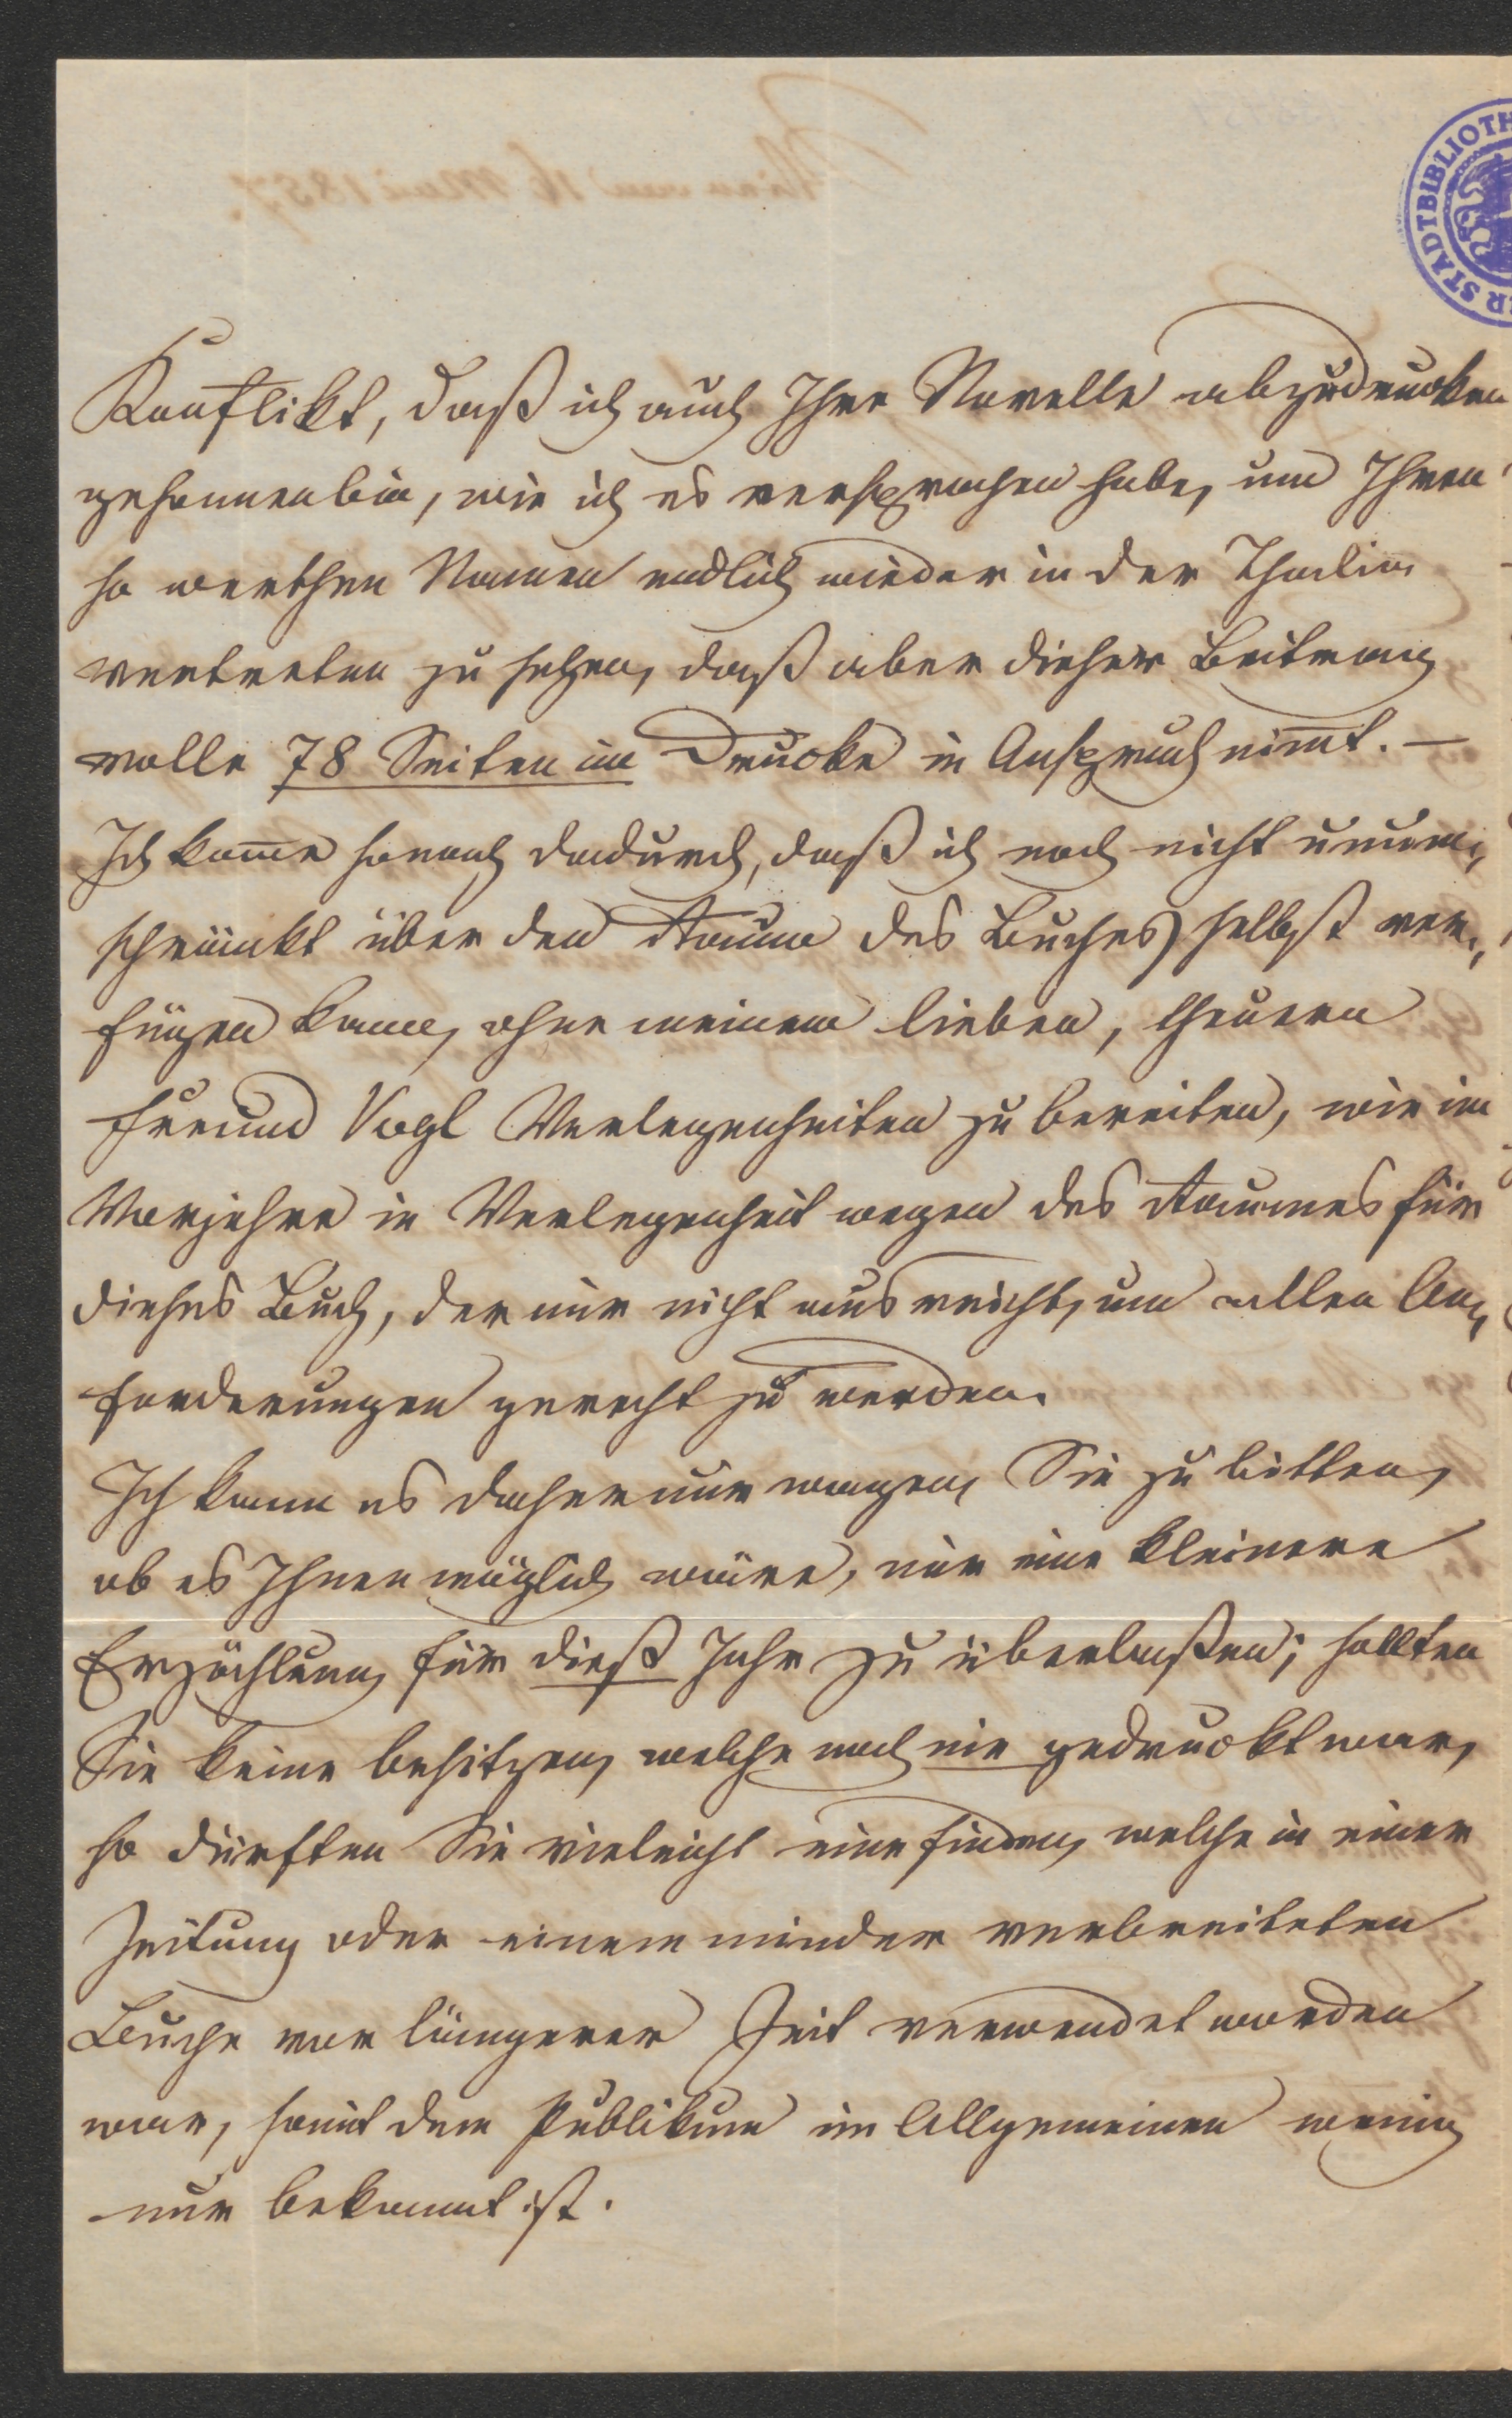 Konflikt, daß ich auch Ihre Novelle abzudrucken
gesonnen bin, wie ich es versprochen habe, um Ihren
so werthen Namen endlich wieder in der Thalia
vertreten zu sehen, daß aber dieser Beitrag
volle 78 Seiten im Drucke in Anspruch nim̅t. —
Ich kom̅e sonach dadurch, daß ich noch nicht unum-
schränkt über den Raum des Buches selbst ver-
fügen kann, ohne meinem lieben, theuern
Freund Vogl Verlegenheiten zu bereiten, wie im
Vorjahre in Verlegenheit wegen des Raumes für
dieses Buch, der mir nicht ausreicht, um allen An-
forderungen gerecht zu werden.
Ich kann es daher nur wagen, Sie zu bitten,
ob es Ihnen möglich wäre, mir eine kleinere
Erzählung für dieß Jahr zu überlaßen; sollten
Sie keine besitzen, welche noch nie gedruckt war,
so dürften Sie vieleicht eine finden, welche in einer
Zeitung oder einem minder verbreiteten
Buche vor längerer Zeit verwendet worden
war, somit dem Publikum im Allgemeinen wenig
nur bekannt ist.
STADTBIBLIOTH